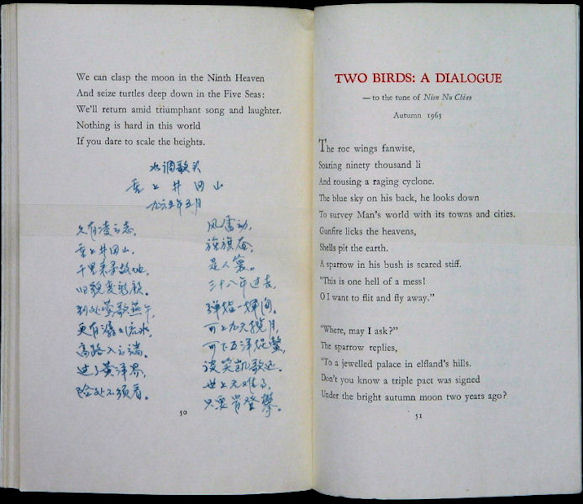 We can clasp the moon in the Ninth Heaven
And seize turtles deep down in the Five Seas:
We'll return amid triumphant song and laughter.
Nothing is hard in this world
If you dare to scale the heights.
水调歌头
重上井冈山
一九六五年五月
久有凌云志，
重上井冈山。
千里来寻故地，
旧貌变新颜。
到处莺歌燕午，
更有潺潺流水，
高路入云端。
过了黄洋界，
险处不须看。
风雷动，
旌旗奋，
是人寰。
三十八年过去，
弹指一挥间。
可上九天揽月，
可下五洋捉鳖，
谈笑凯歌还。
世上无难事，
只要肯登攀。
50
TWO BIRDS: A DIALOGUE
—to the tune of Nien Nu Chiao
Autumn 1965
The roc wings fanwise,
Soaring ninety thousand li
And rousing a raging cyclone.
The blue sky on his back, he looks down
To survey Man's world with its towns and cities.
Gunfire licks the heavens,
Shells pit the earth.
A sparrow in his bush is scared stiff.
"This is one hell of a mess!
O I want to flit and fly away."
"Where, may I ask?"
The sparrow replies,
"To a jewelled palace in elfland's hills.
Don't you know a triple pact was signed
Under the bright autumn moon two years ago?
51